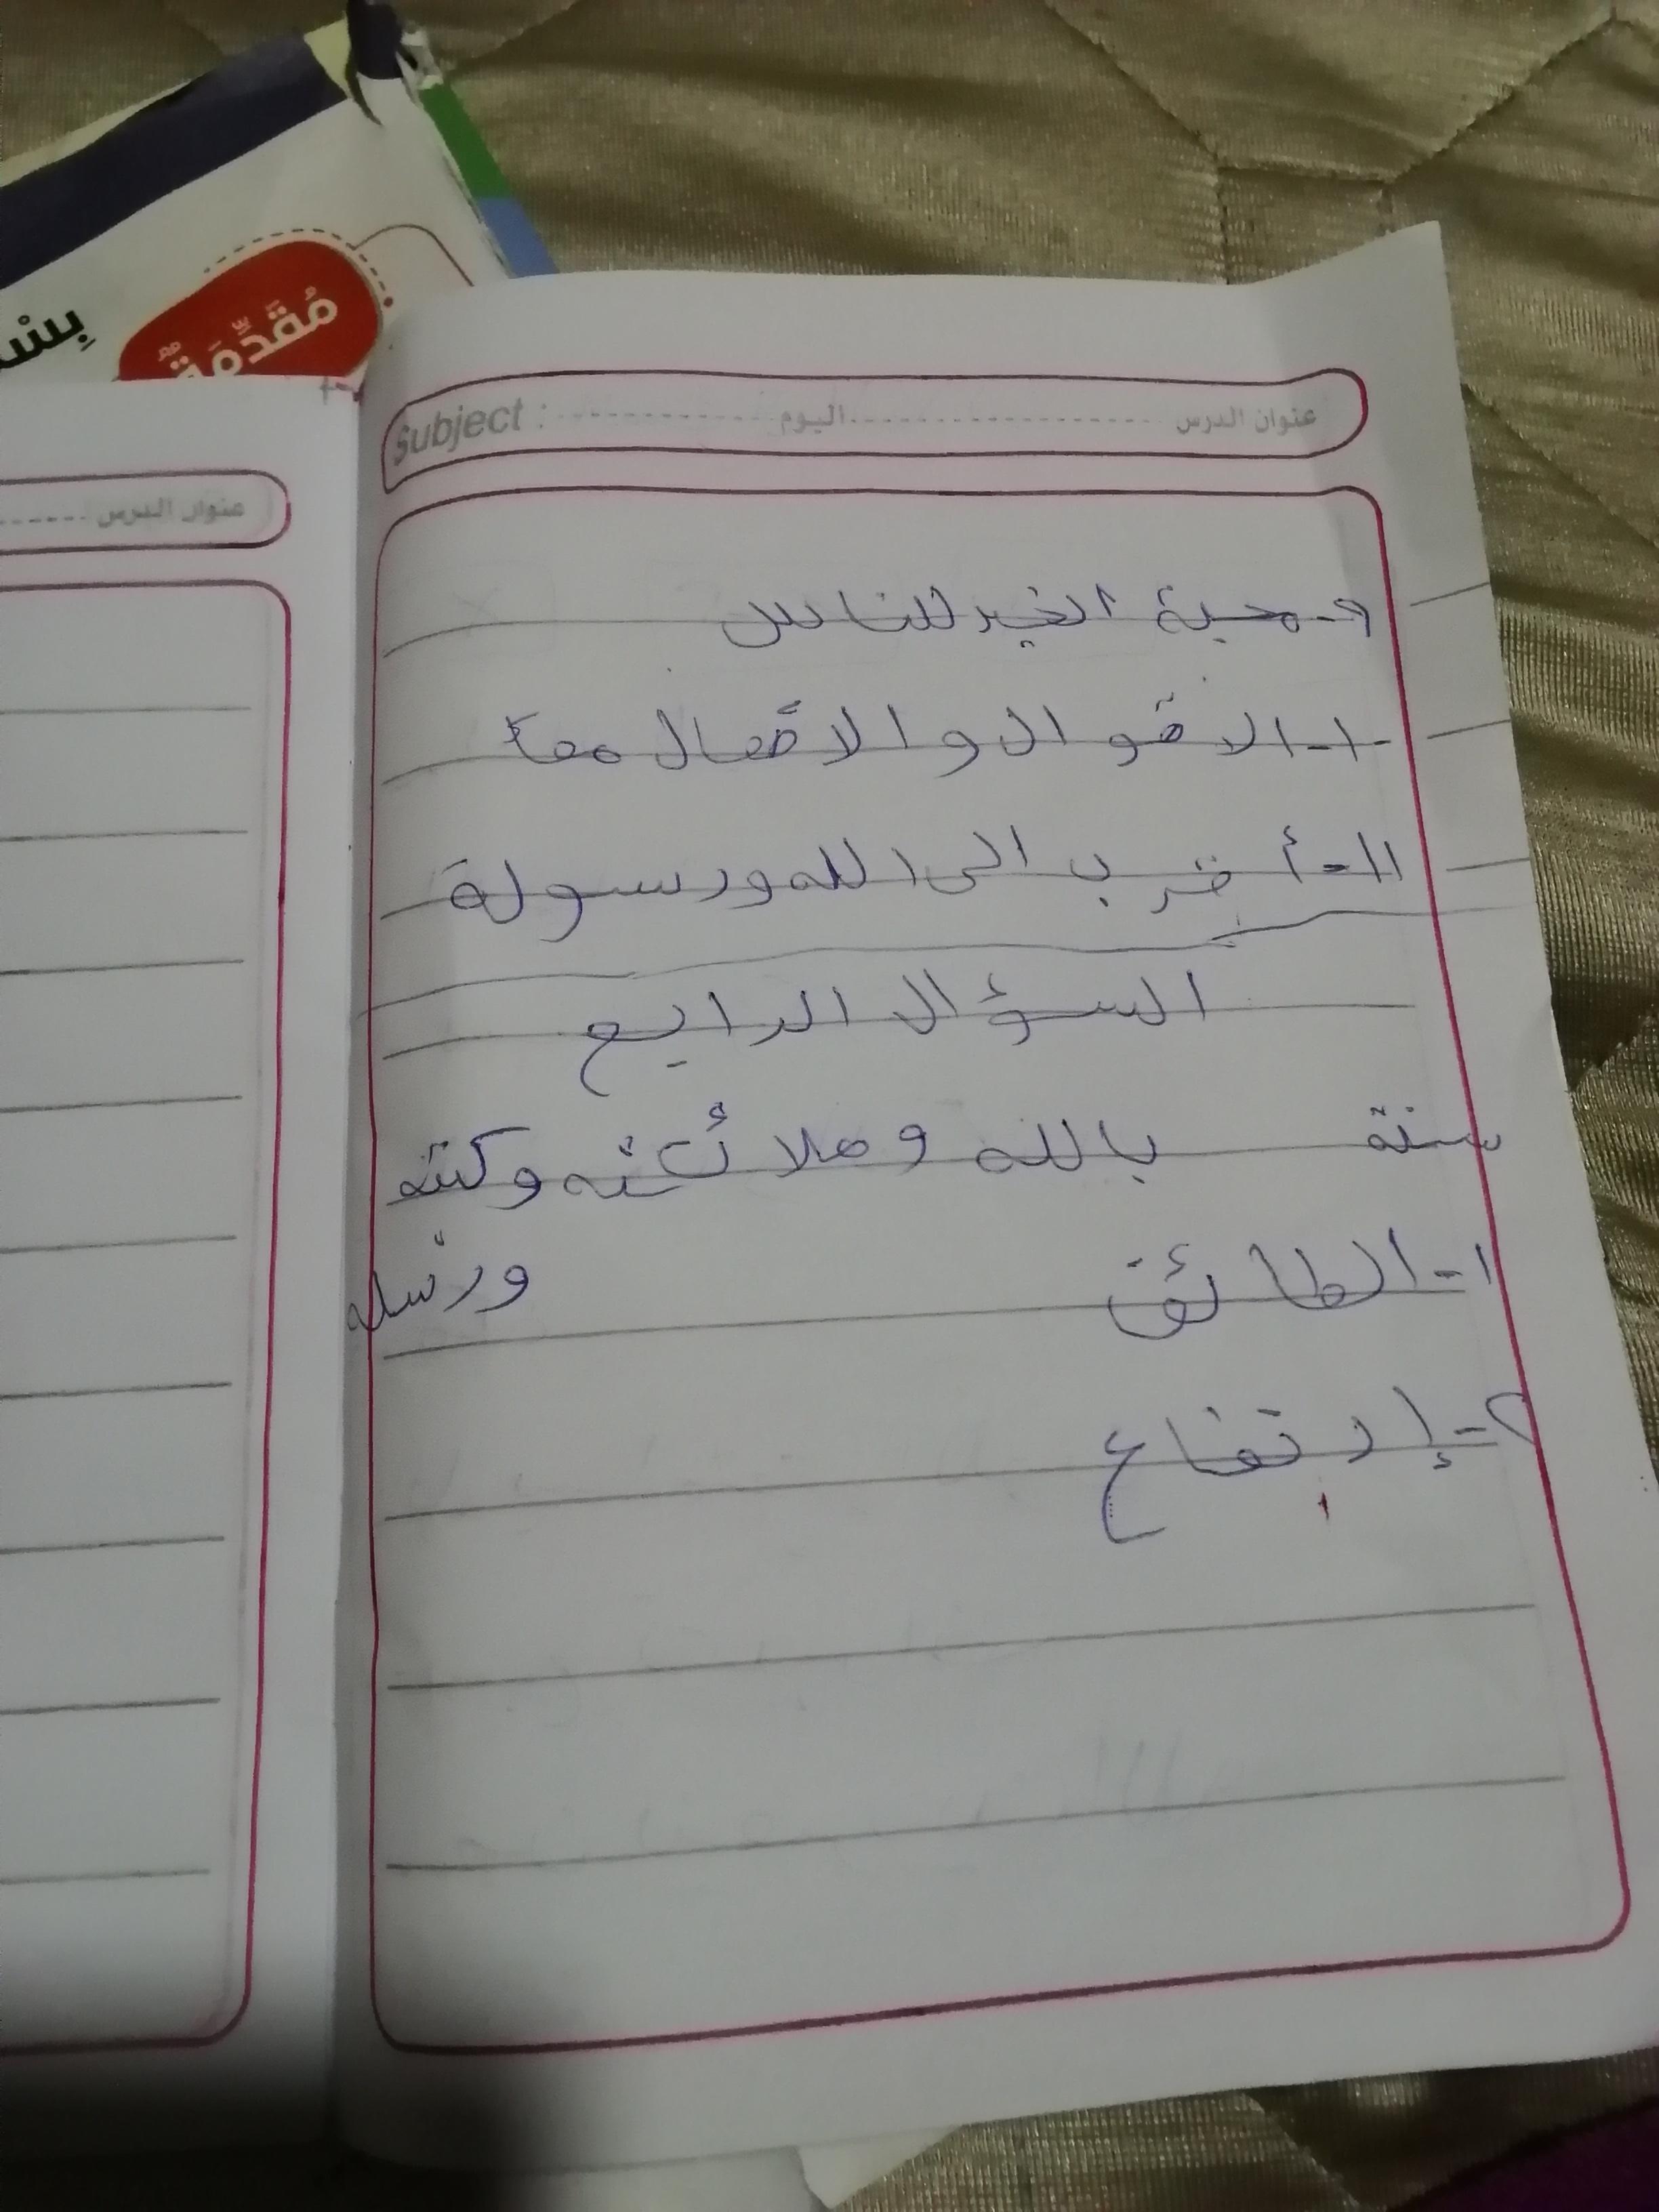 مُقَدِّمَةٌ
بِسْ
عنوان الدرس اليوم subject :
عنوان الدرس
٩- محبة الخير للناس
١٠- الاقوال والافعال معاً
١١- أقرب الى الله ورسولة
السؤال الرابع
سنة بالله وملائكته وكتبه
ورسله
١- الطائق
٢- إرتفاع